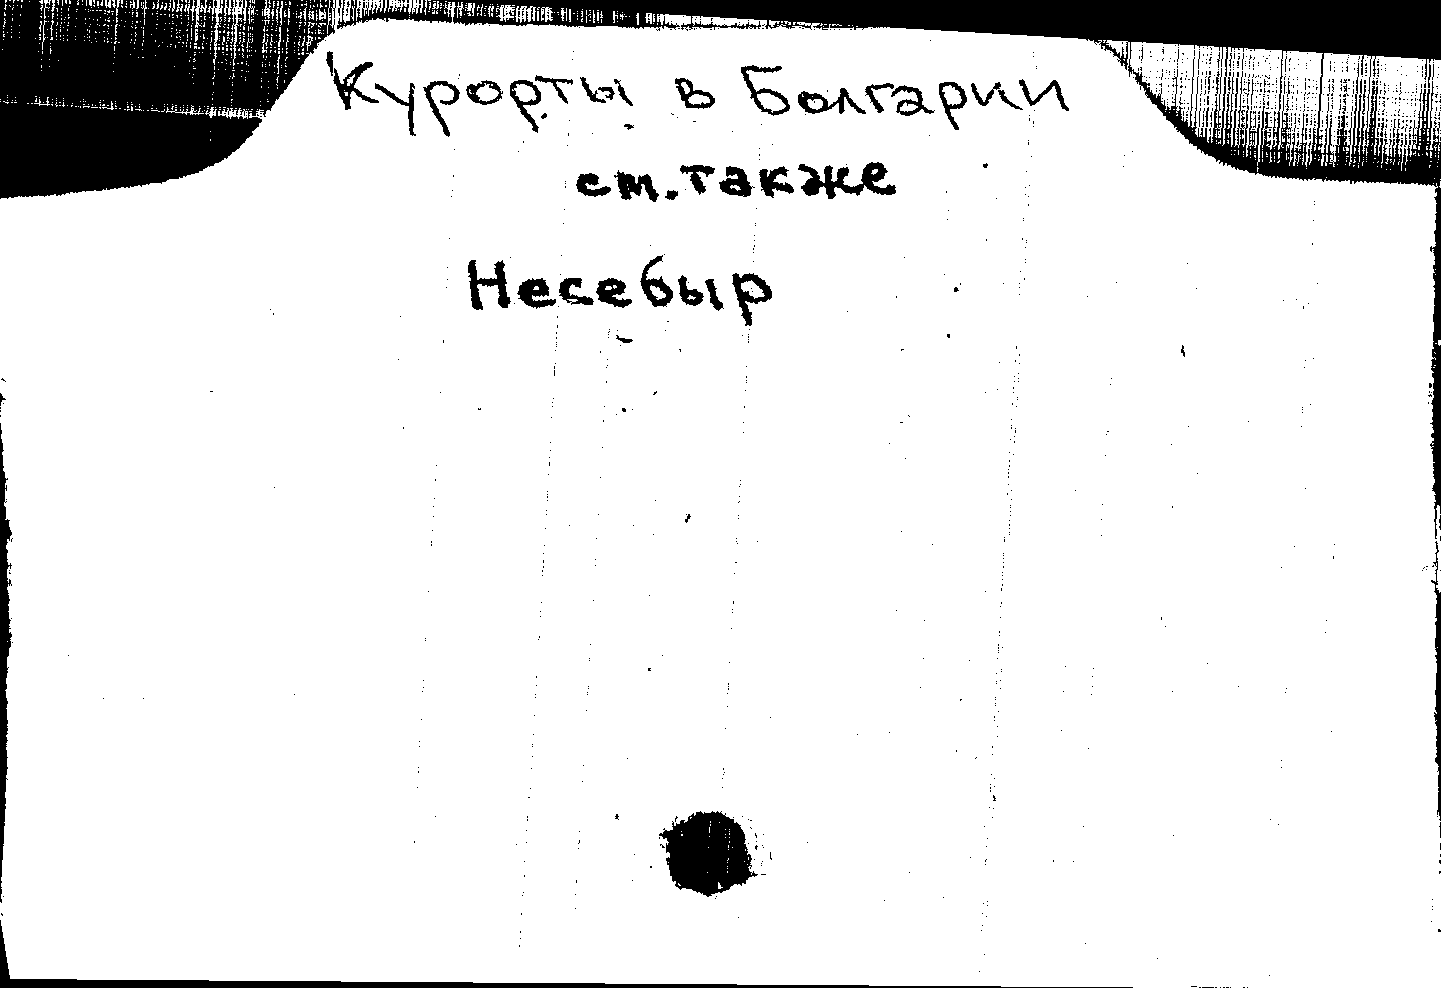 Курорты в Болгарии
см. также
Несебыр